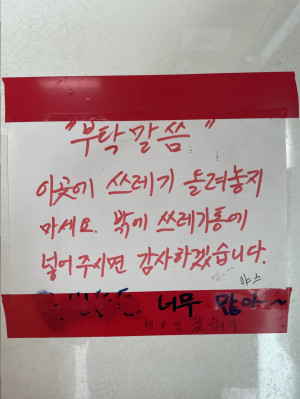 "부탁말씀"
이곳에 쓰레기 올려놓지
마세요. 밖에 쓰레기통에
넣어주시면 감사하겠습니다.
야스
너무 많아~